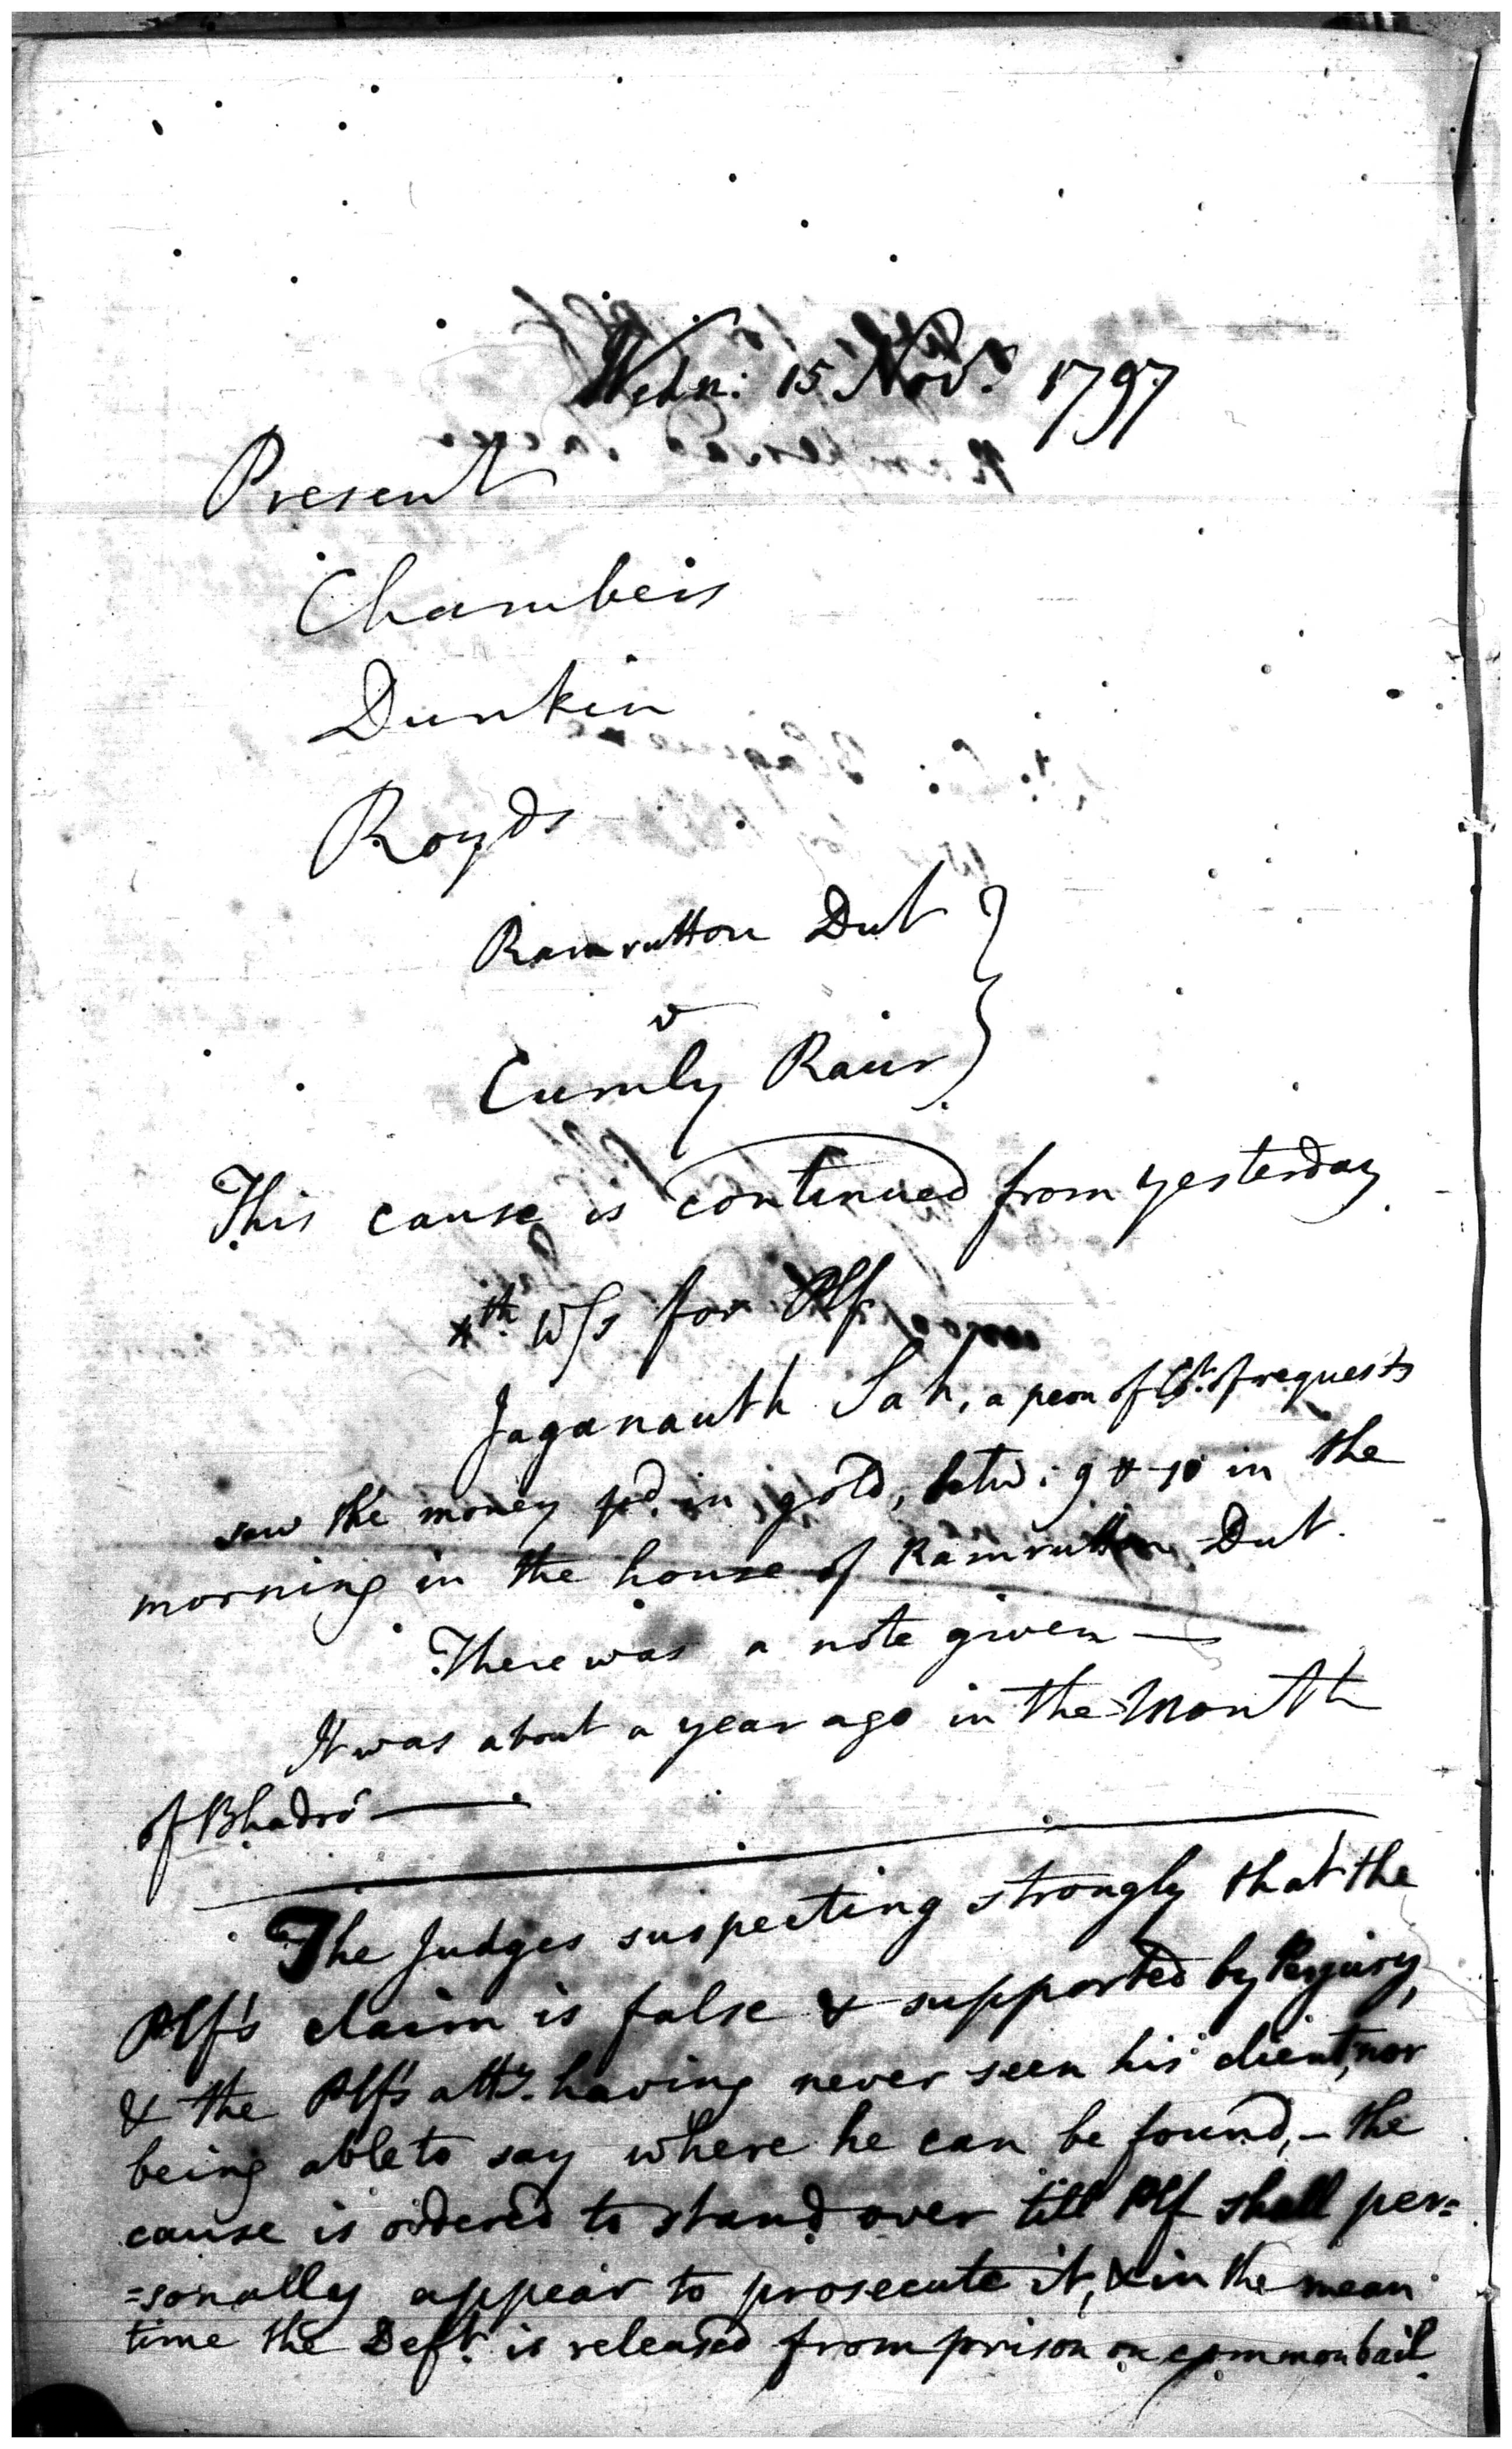 Wedn: 15 Novr. 1797
Present
Chambers
Dunkin
Royds
Ramrutton Dut
v
Cumly Raur
This cause is continued from yesterday
4th W/s for Plf
Jaganauth Sah, a peon of Ct. of requests
saw the money pd. in gold, betw: 9 & 10 in the
morning in the house of Ramrutton Dut.
There was a note given —
It was about a year ago in the Month
of Bhadro —
The Judges suspecting strongly that the
Plf's claim is false & supported by Perjury,
& the Plf's atty. having never seen his client, nor
being able to say where he can be found, – the
cause is ordered to stand over till Plf shall per=
=sonally appear to prosecute it, & in the mean
time the Deft. is released from prison on common bail.